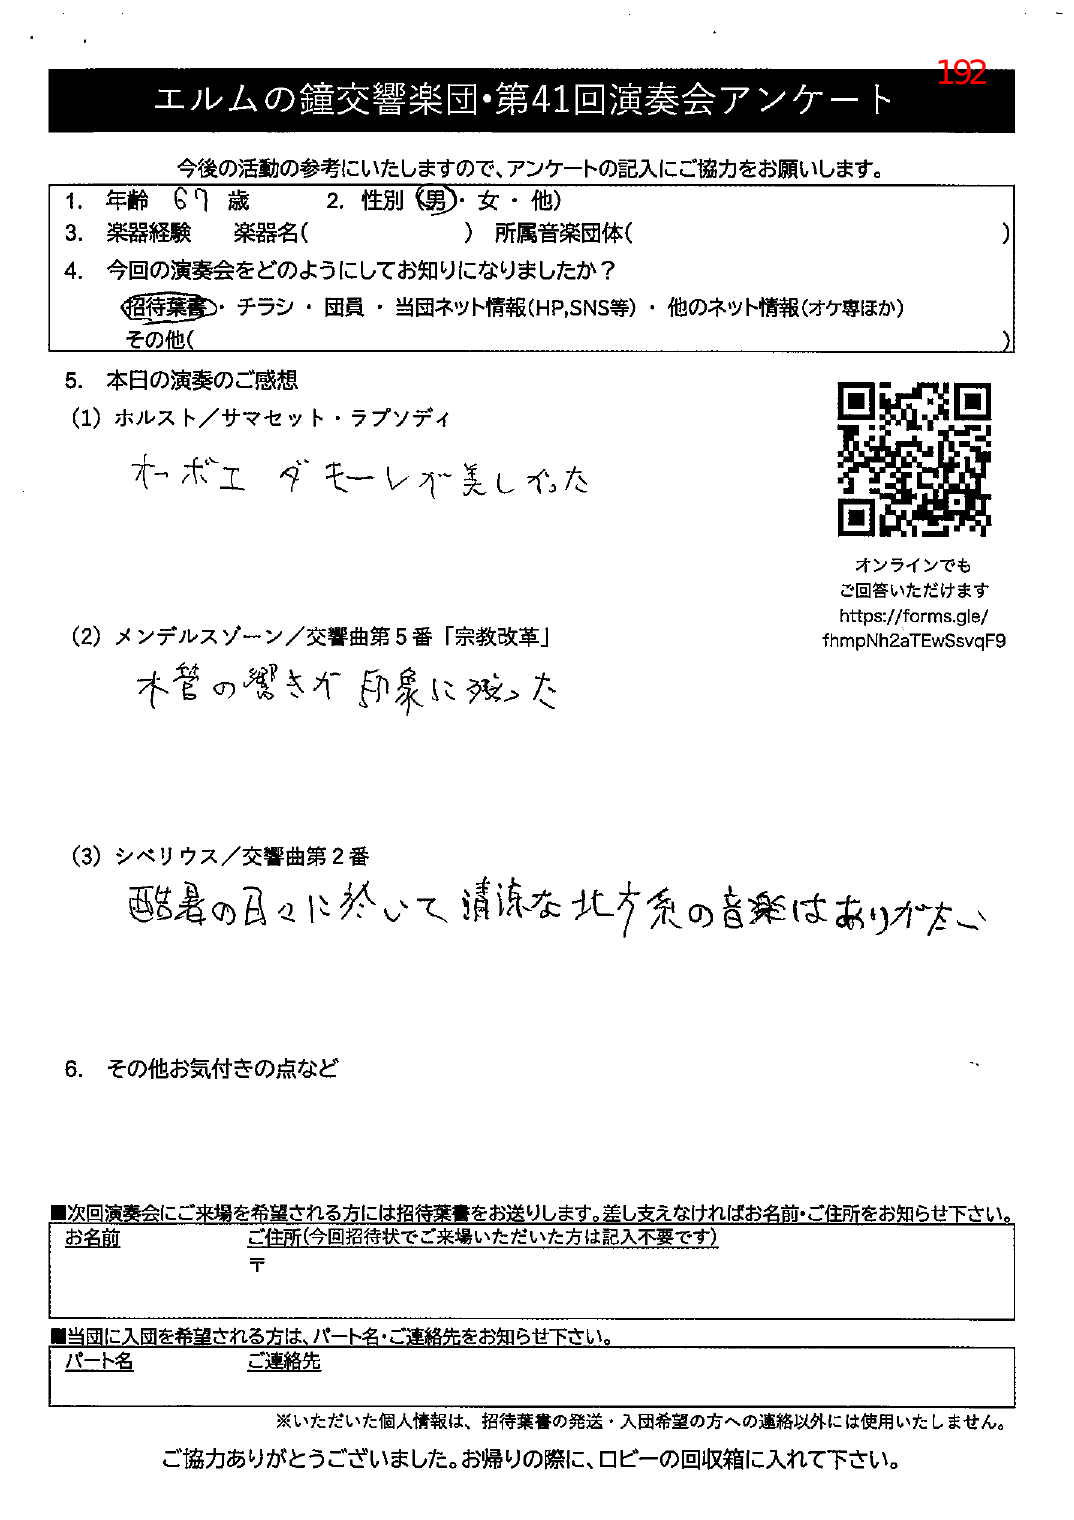 192
エルムの鐘交響楽団・第41回演奏会アンケート
今後の活動の参考にいたしますので、アンケートの記入にご協力をお願いします。
1. 年齢 67 歳 2. 性別 (男・ 女 ・ 他)
3. 楽器経験 楽器名( ) 所属音楽団体( )
4. 今回の演奏会をどのようにしてお知りになりましたか？
招待葉書・ チラシ ・ 団員 ・ 当団ネット情報(HP,SNS等) ・ 他のネット情報(オケ専ほか)
その他( )
5. 本日の演奏のご感想
(1) ホルスト／サマセット・ラプソディ
オーボエ ダモーレが美しかった
オンラインでも
ご回答いただけます
https://forms.gle/
fhmpNh2aTEwSsvqF9
(2) メンデルスゾーン／交響曲第５番「宗教改革」
木管の響きが印象に残った
(3) シベリウス／交響曲第２番
酷暑の日々に於いて清涼な北方系の音楽はありがたい
6. その他お気付きの点など
■次回演奏会にご来場を希望される方には招待葉書をお送りします。差し支えなければお名前・ご住所をお知らせ下さい。
お名前 ご住所(今回招待状でご来場いただいた方は記入不要です)
〒
■当団に入団を希望される方は、パート名・ご連絡先をお知らせ下さい。
パート名 ご連絡先
※いただいた個人情報は、招待葉書の発送・入団希望の方への連絡以外には使用いたしません。
ご協力ありがとうございました。お帰りの際に、ロビーの回収箱に入れて下さい。